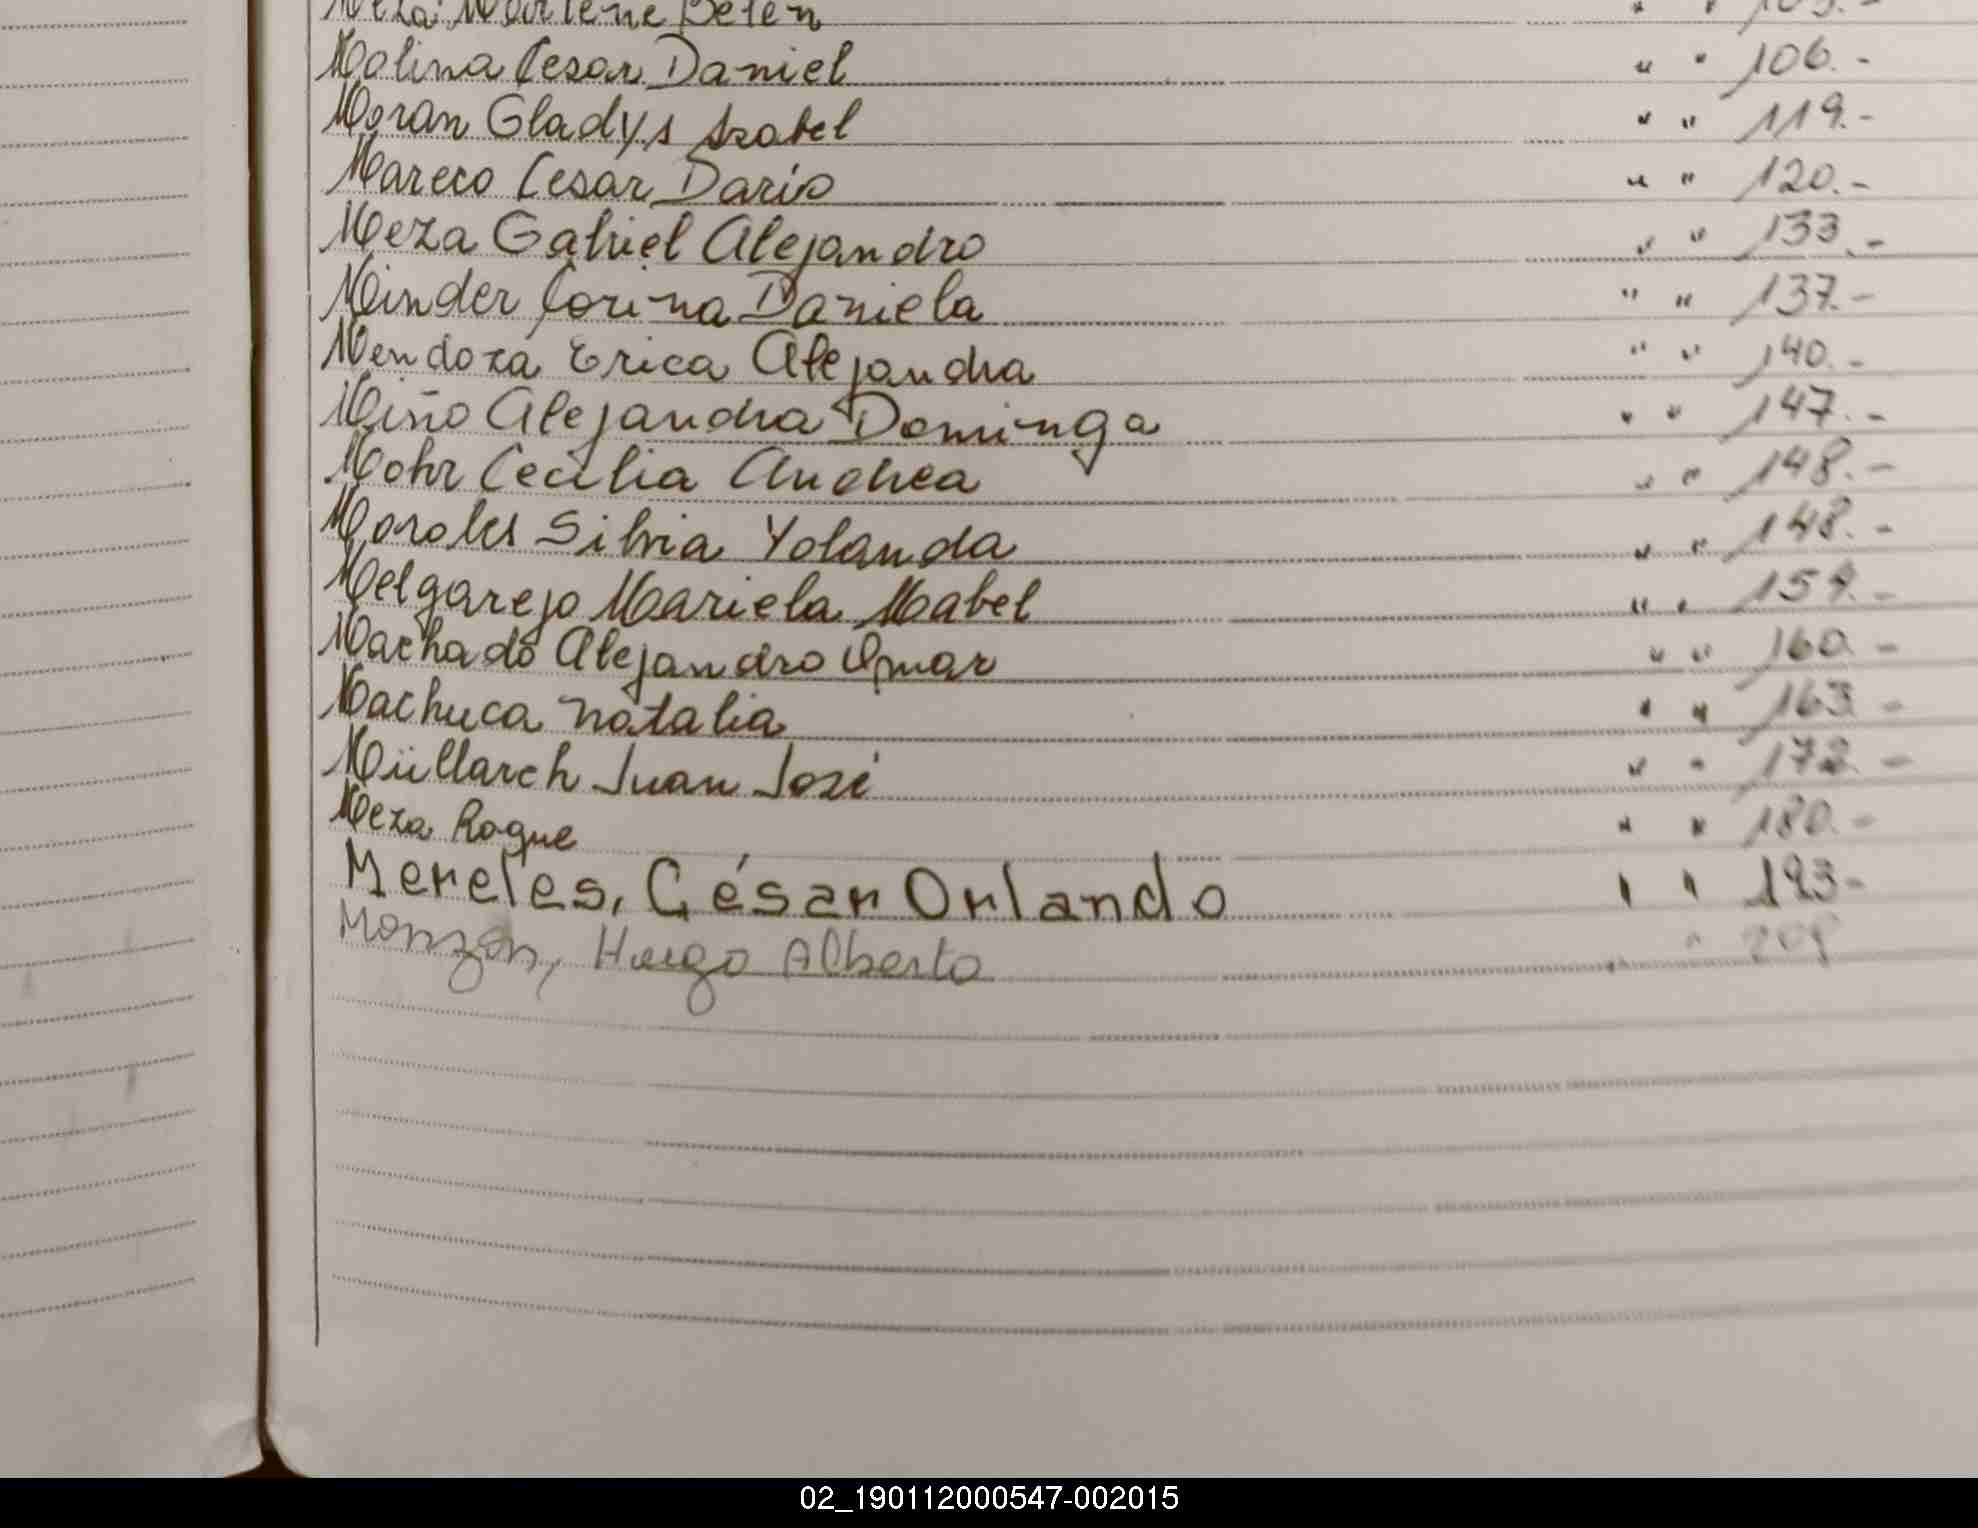 Meza Marlene Belen " " 105.-
Molina Cesar Daniel " " 106.-
Moran Gladys Isabel " " 119.-
Mareco Cesar Dario " " 120.-
Meza Gabriel Alejandro " " 133.-
Minder Corina Daniela " " 137.-
Mendoza Erica Alejandra " " 140.-
Miño Alejandra Dominga " " 147.-
Mohr Cecilia Andrea " " 148.-
Morales Silvia Yolanda " " 148.-
Melgarejo Mariela Mabel " "
Machado Alejandro Omar " " 160.-
Machuca Natalia " " 163.-
Müllarch Juan José " " 172.-
Meza Roque " " 180.-
Mereles, César Orlando " " 193-
Monzón, Hugo Alberto " "
02_190112000547-002015